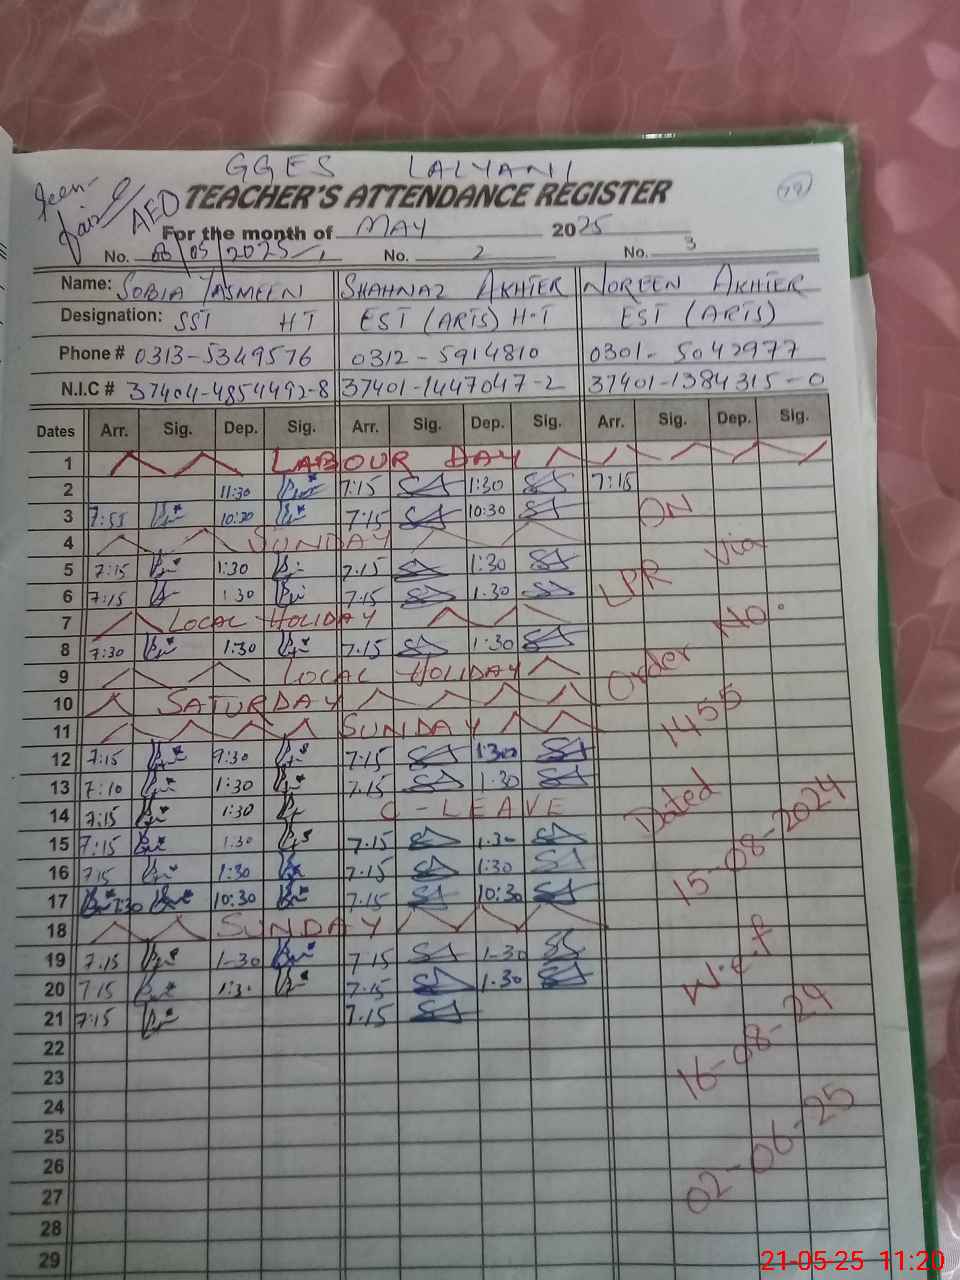 GGES LALYANI
TEACHER'S ATTENDANCE REGISTER
19
AEO
For the month of MAY 2025
No. 08/05/2025 No. 2 No. 3
Name: SOBIA YASMEEN SHAHNAZ AKHTER NOREEN AKHTER
Designation: SST HT EST (ARTS) H.T EST (ARTS)
Phone # 0313-5349576 0312-5914810 0301-5042977
N.I.C # 37404-4854492-8 37401-1447047-2 37401-1384315-0
Dates Arr. Sig. Dep. Sig. Arr. Sig. Dep. Sig. Arr. Sig. Dep. Sig.
1 LABOUR DAY
2 11:30 7:15 1:30 7:15
3 7:55 10:30 7:15 10:30 ON
4 SUNDAY
5 7:15 1:30 7.15 1:30 LPR Via
6 7:15 1:30 7.15 1.30
7 LOCAL HOLIDAY
8 7:30 1:30 7.15 1:30 Order No.
9 LOCAL HOLIDAY
10 SATURDAY
11 SUNDAY 1455
12 7:15 9:30 7.15 1:30
13 7:10 1:30 7.15 1.30
14 7:15 1:30 C-LEAVE Dated
15 7:15 1:30 7.15 1.30
16 7 15 1:30 7.15 1:30 15-08-2024
17 7:30 10:30 7.15 10:30
18 SUNDAY
19 7.15 1-30 7 15 1-30 W.e.f
20 7 15 1:30 7.15 1.30
21 7:15 7.15
22 16-08-24
23
24
25
26 02-06-25
27
28
29
21-05-25 11:20